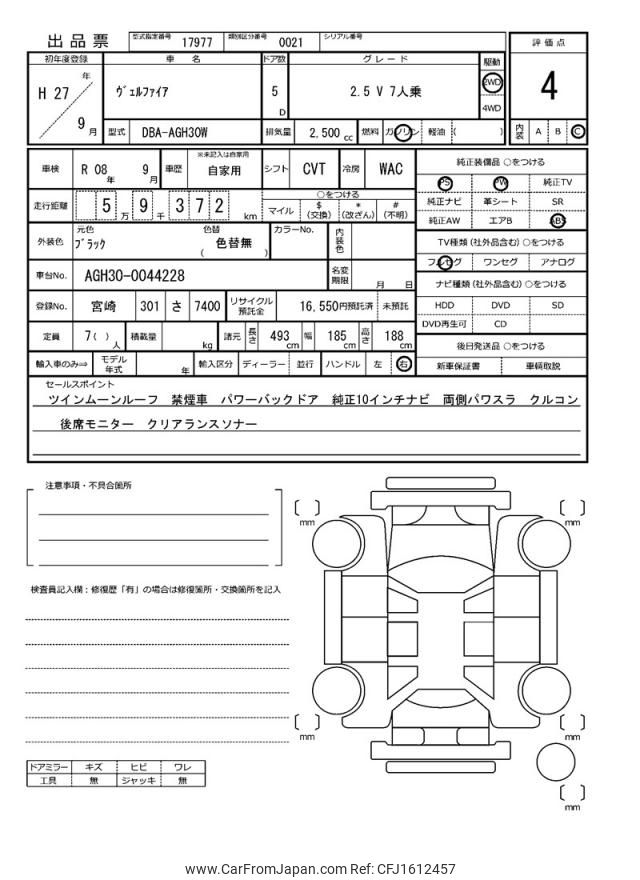 出品票 型式指定番号 17977 類別区分番号 0021 シリアル番号
評価点
初年度登録 車名 ドア数 グレード 駆動
H 27 年 9 月 ヴェルファイア 5 D 2.5 V 7人乗 2WD 4WD
4
型式 DBA-AGH30W 排気量 2,500 cc 燃料 ガソリン 軽油 ( )
内装 A B C
車検 R 08 年 9 月 車歴 ※未記入は自家用 自家用 シフト CVT 冷房 WAC
純正装備品 ○をつける
PS PW 純正TV
走行距離 5 万 9 千 3 7 2 km
○をつける
マイル $ (交換) * (改ざん) # (不明)
純正ナビ 革シート SR
純正AW エアB ABS
外装色 元色 ブラック 色替 ( 色替無 ) カラーNo. 内装色
TV種類 (社外品含む) ○をつける
フルセグ ワンセグ アナログ
車台No. AGH30-0044228 名変期限 月 日
ナビ種類 (社外品含む) ○をつける
登録No. 宮崎 301 さ 7400 リサイクル預託金 16,550円預託済 未預託
HDD DVD SD
DVD再生可 CD
定員 7( ) 人 積載量 kg 諸元 長さ 493 cm 幅 185 cm 高さ 188 cm
後日発送品 ○をつける
輸入車のみ⇒ モデル年式 年 輸入区分 ディーラー 並行 ハンドル 左 右
新車保証書 車輌取説
セールスポイント
ツインムーンルーフ 禁煙車 パワーバックドア 純正10インチナビ 両側パワスラ クルコン
後席モニター クリアランスソナー
注意事項・不具合箇所
mm
mm
検査員記入欄：修復歴「有」の場合は修復箇所・交換箇所を記入
mm
mm
ドアミラー キズ ヒビ ワレ
工具 無 ジャッキ 無
mm
www.CarFromJapan.com Ref: CFJ1612457